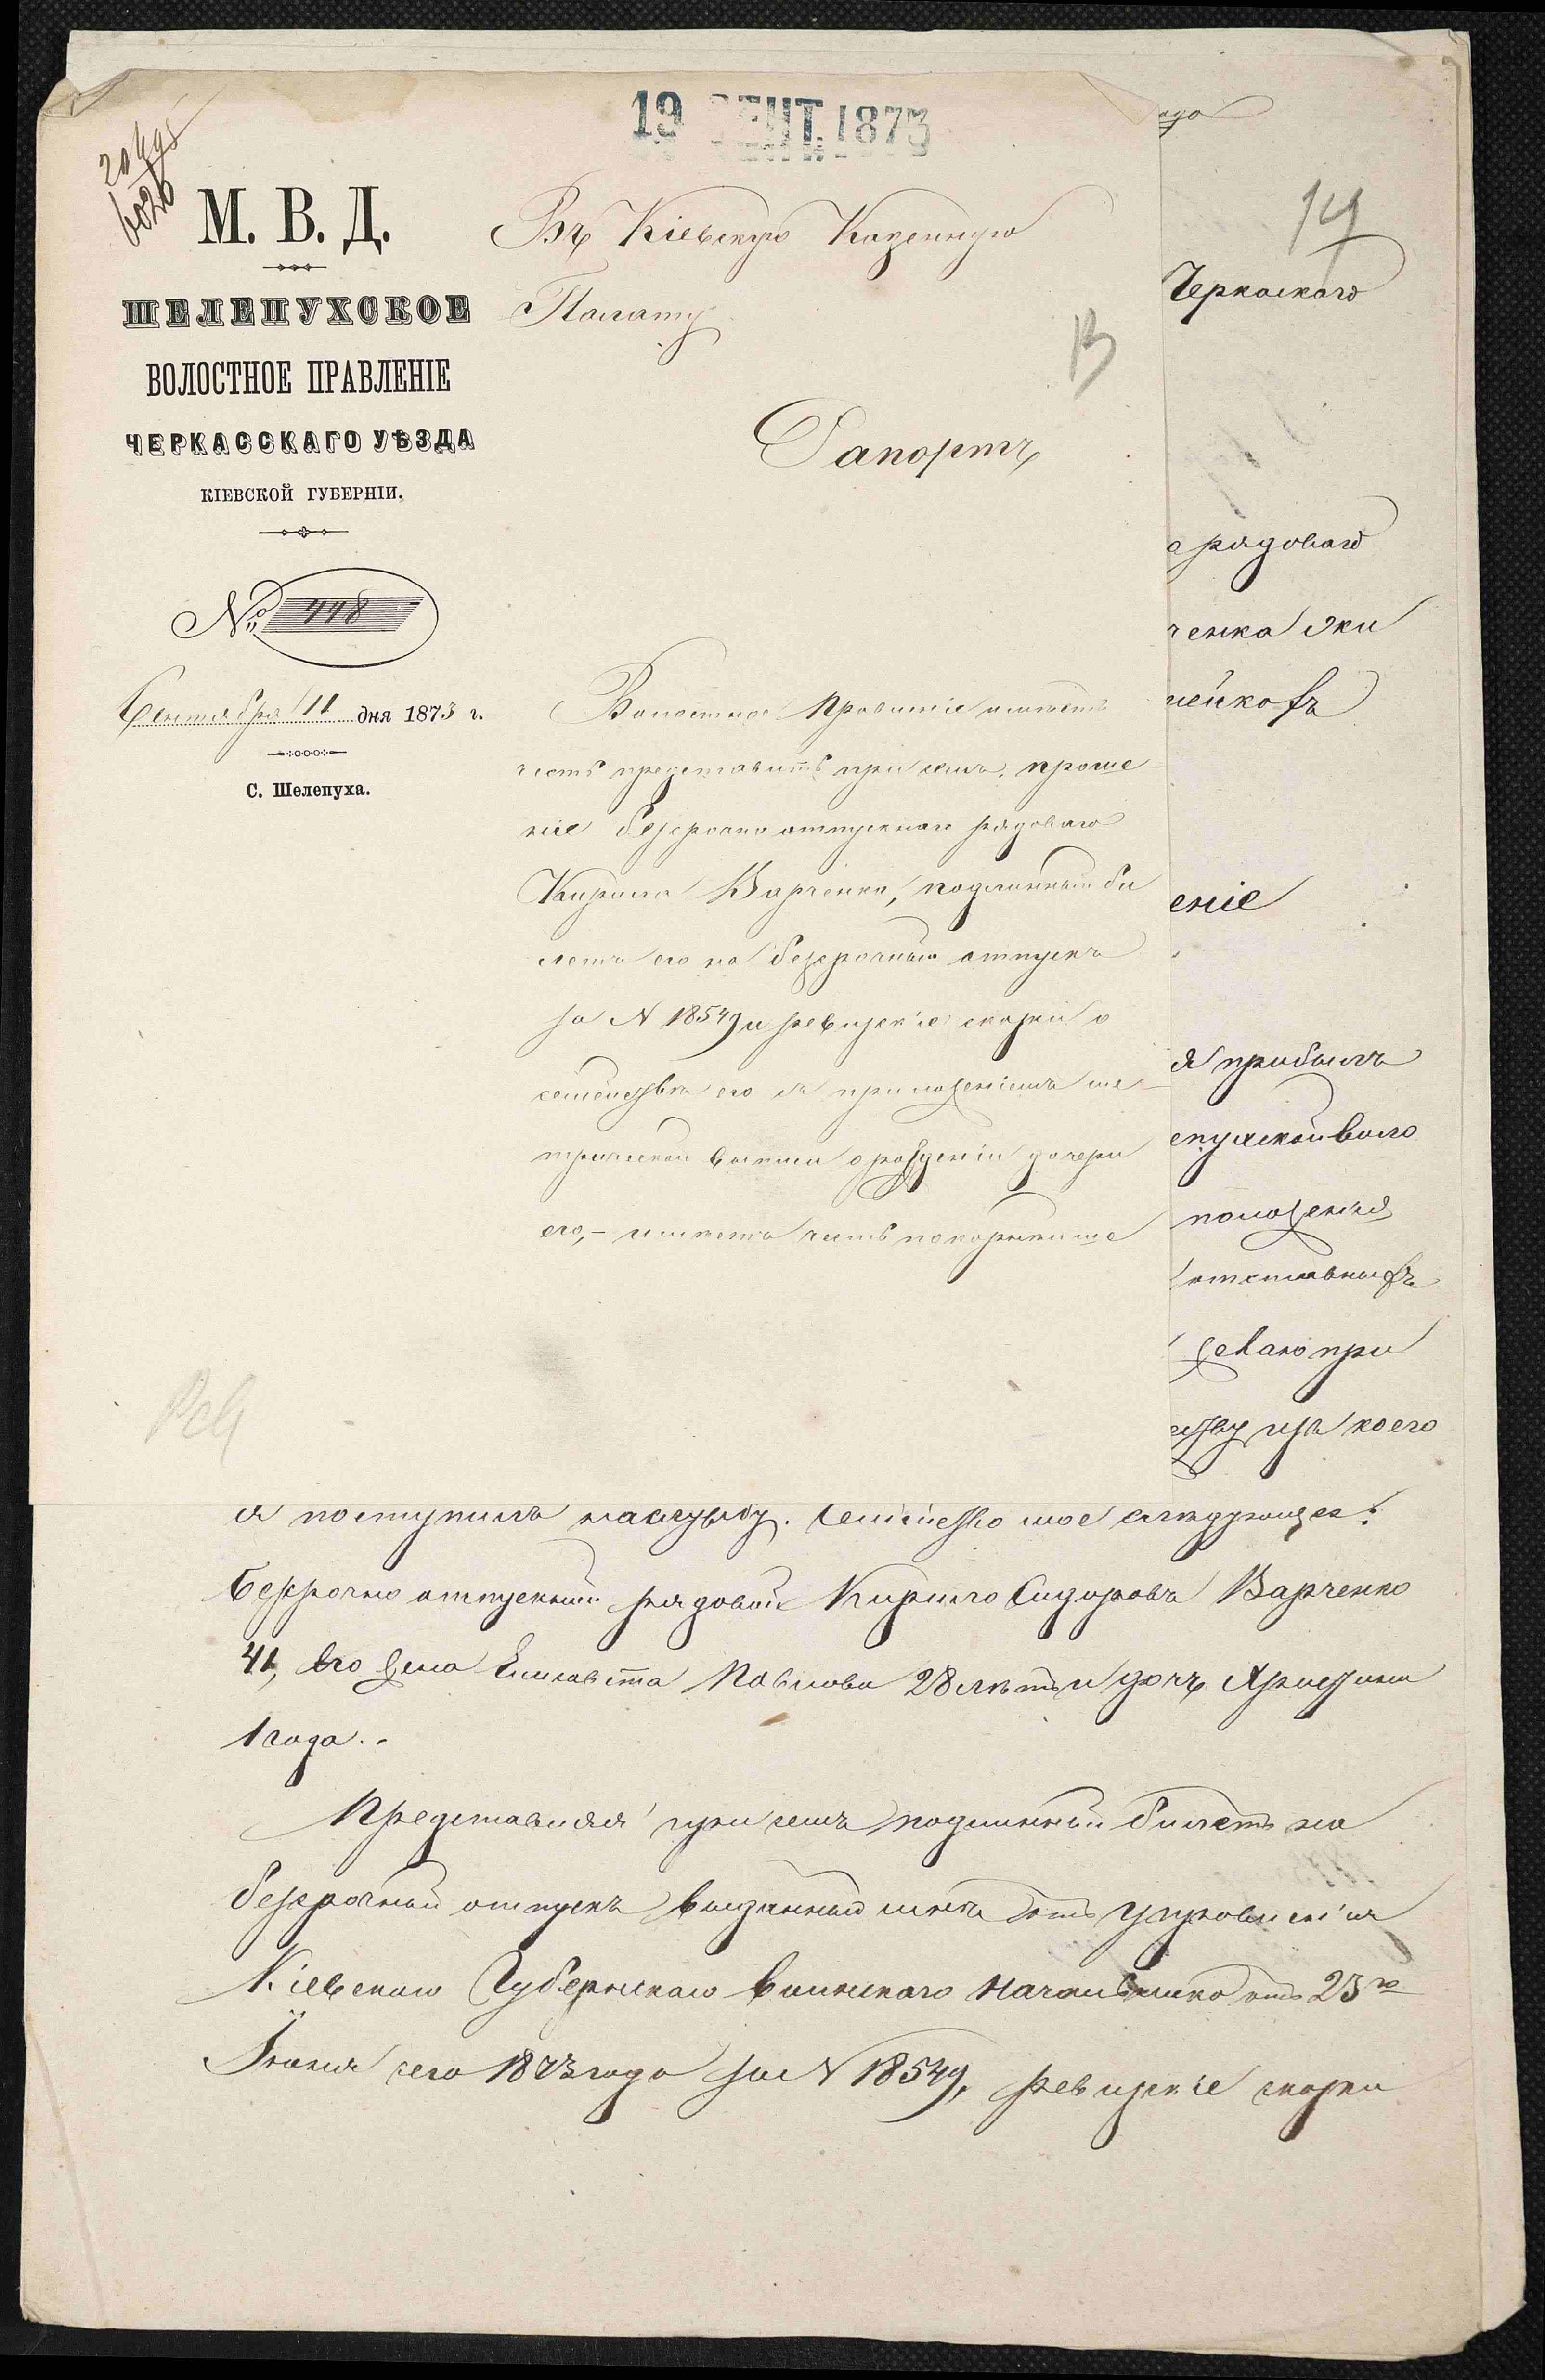 19 СЕНТ. 1873
М. В. Д.
ШЕЛЕПУХСКОЕ
ВОЛОСТНОЕ ПРАВЛЕНІЕ
ЧЕРКАССКАГО УѢЗДА
КІЕВСКОЙ ГУБЕРНІИ.
№ 448
Сентября 11 дня 1873 г.
С. Шелепуха.
Въ Кіевскую Казенную
Палату
13
Рапортъ
Волостное Правленіе имѣетъ
честь представить при семъ, проше
ніе безсрочно отпускнаго рядоваго
Кирила Варченка, подлинный би
летъ его на безсрочный отпускъ
за N 18549 и ревизскіе сказки о
семействѣ его съ приложеніемъ ме-
трической выписи о рожденіи дочери
его, – имѣетъ честь покорнѣйше
14
Черкаскаго
рядоваго
ченка эки
нейковъ
еніе
я прибылъ
епухской воло
положенія
отставныхъ
желаю при
изъ коего
я поступилъ на службу. Семейство мое слѣдующее:
Безсрочно отпускный рядовой Кирило Сидоровъ Варченко
41, его жена Елисавета Павлова 28 лѣтъ и дочь Христина
1 года. -
Представляя при семъ подлинный билетъ на
безсрочный отпускъ выданный мнѣ отъ управленія
Кіевскаго Губернскаго воинскаго Начальника отъ 23го
Іюня сего 1873 года за N 18549, ревизскіе сказки